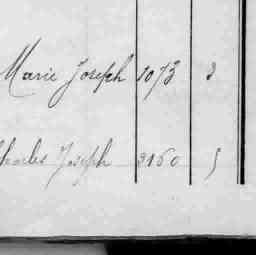 Marie Joseph 1073 3
Charles Joseph 3160 5